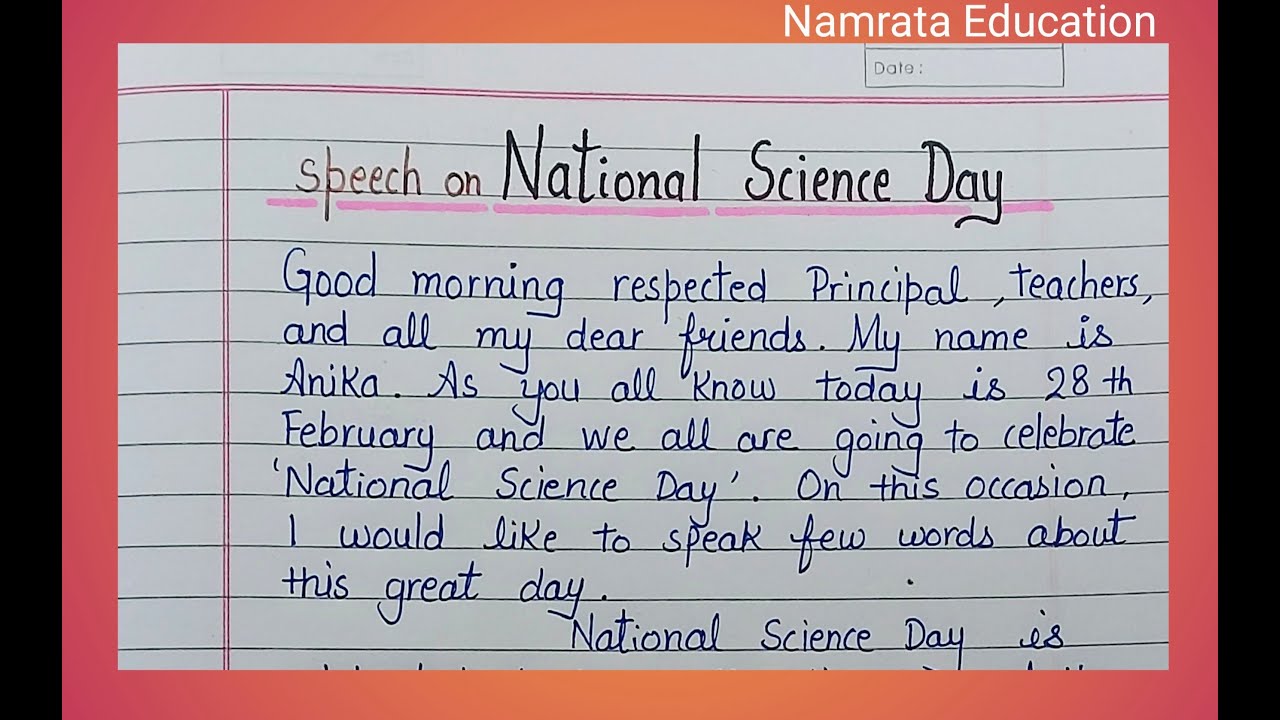 Namrata Education
Date:
speech on National Science Day
Good morning respected Principal, teachers,
and all my dear friends. My name is
Anika. As you all know today is 28th
February and we all are going to celebrate
'National Science Day'. On this occasion,
I would like to speak few words about
this great day.
National Science Day is